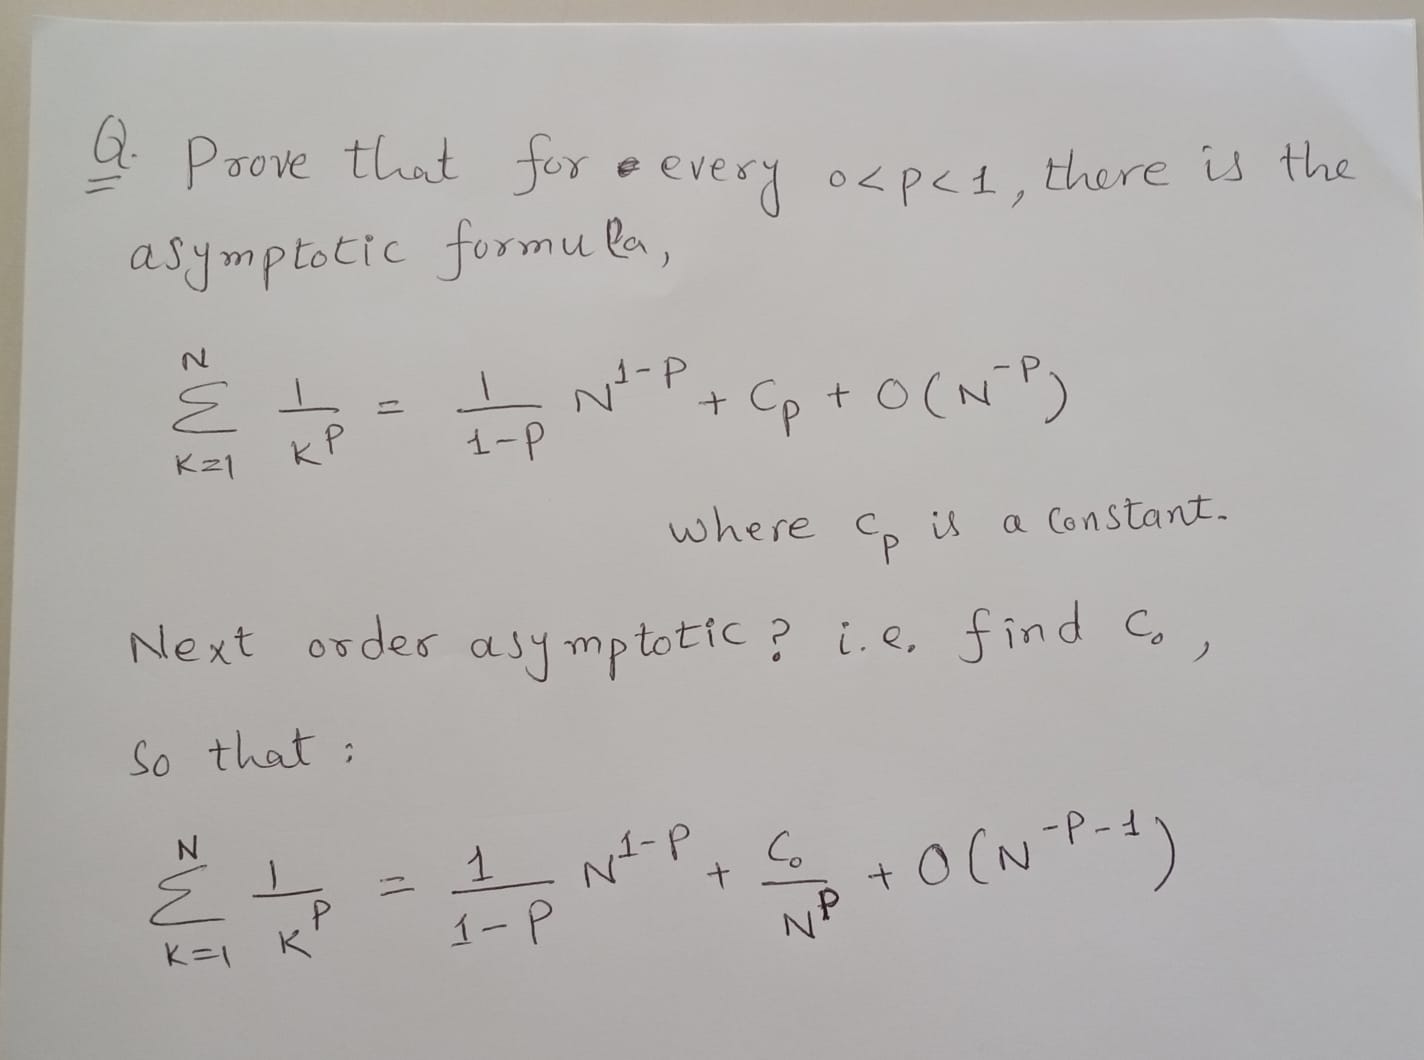 Q. Prove that for every 0<p<1, there is the
asymptotic formula,
\sum_{K=1}^{N} \frac{1}{K^P} = \frac{1}{1-P} N^{1-P} + C_P + O(N^{-P})
where C_P is a constant.
Next order asymptotic? i.e. find C_0,
So that :
\sum_{K=1}^{N} \frac{1}{K^P} = \frac{1}{1-P} N^{1-P} + \frac{C_0}{N^P} + O(N^{-P-1})